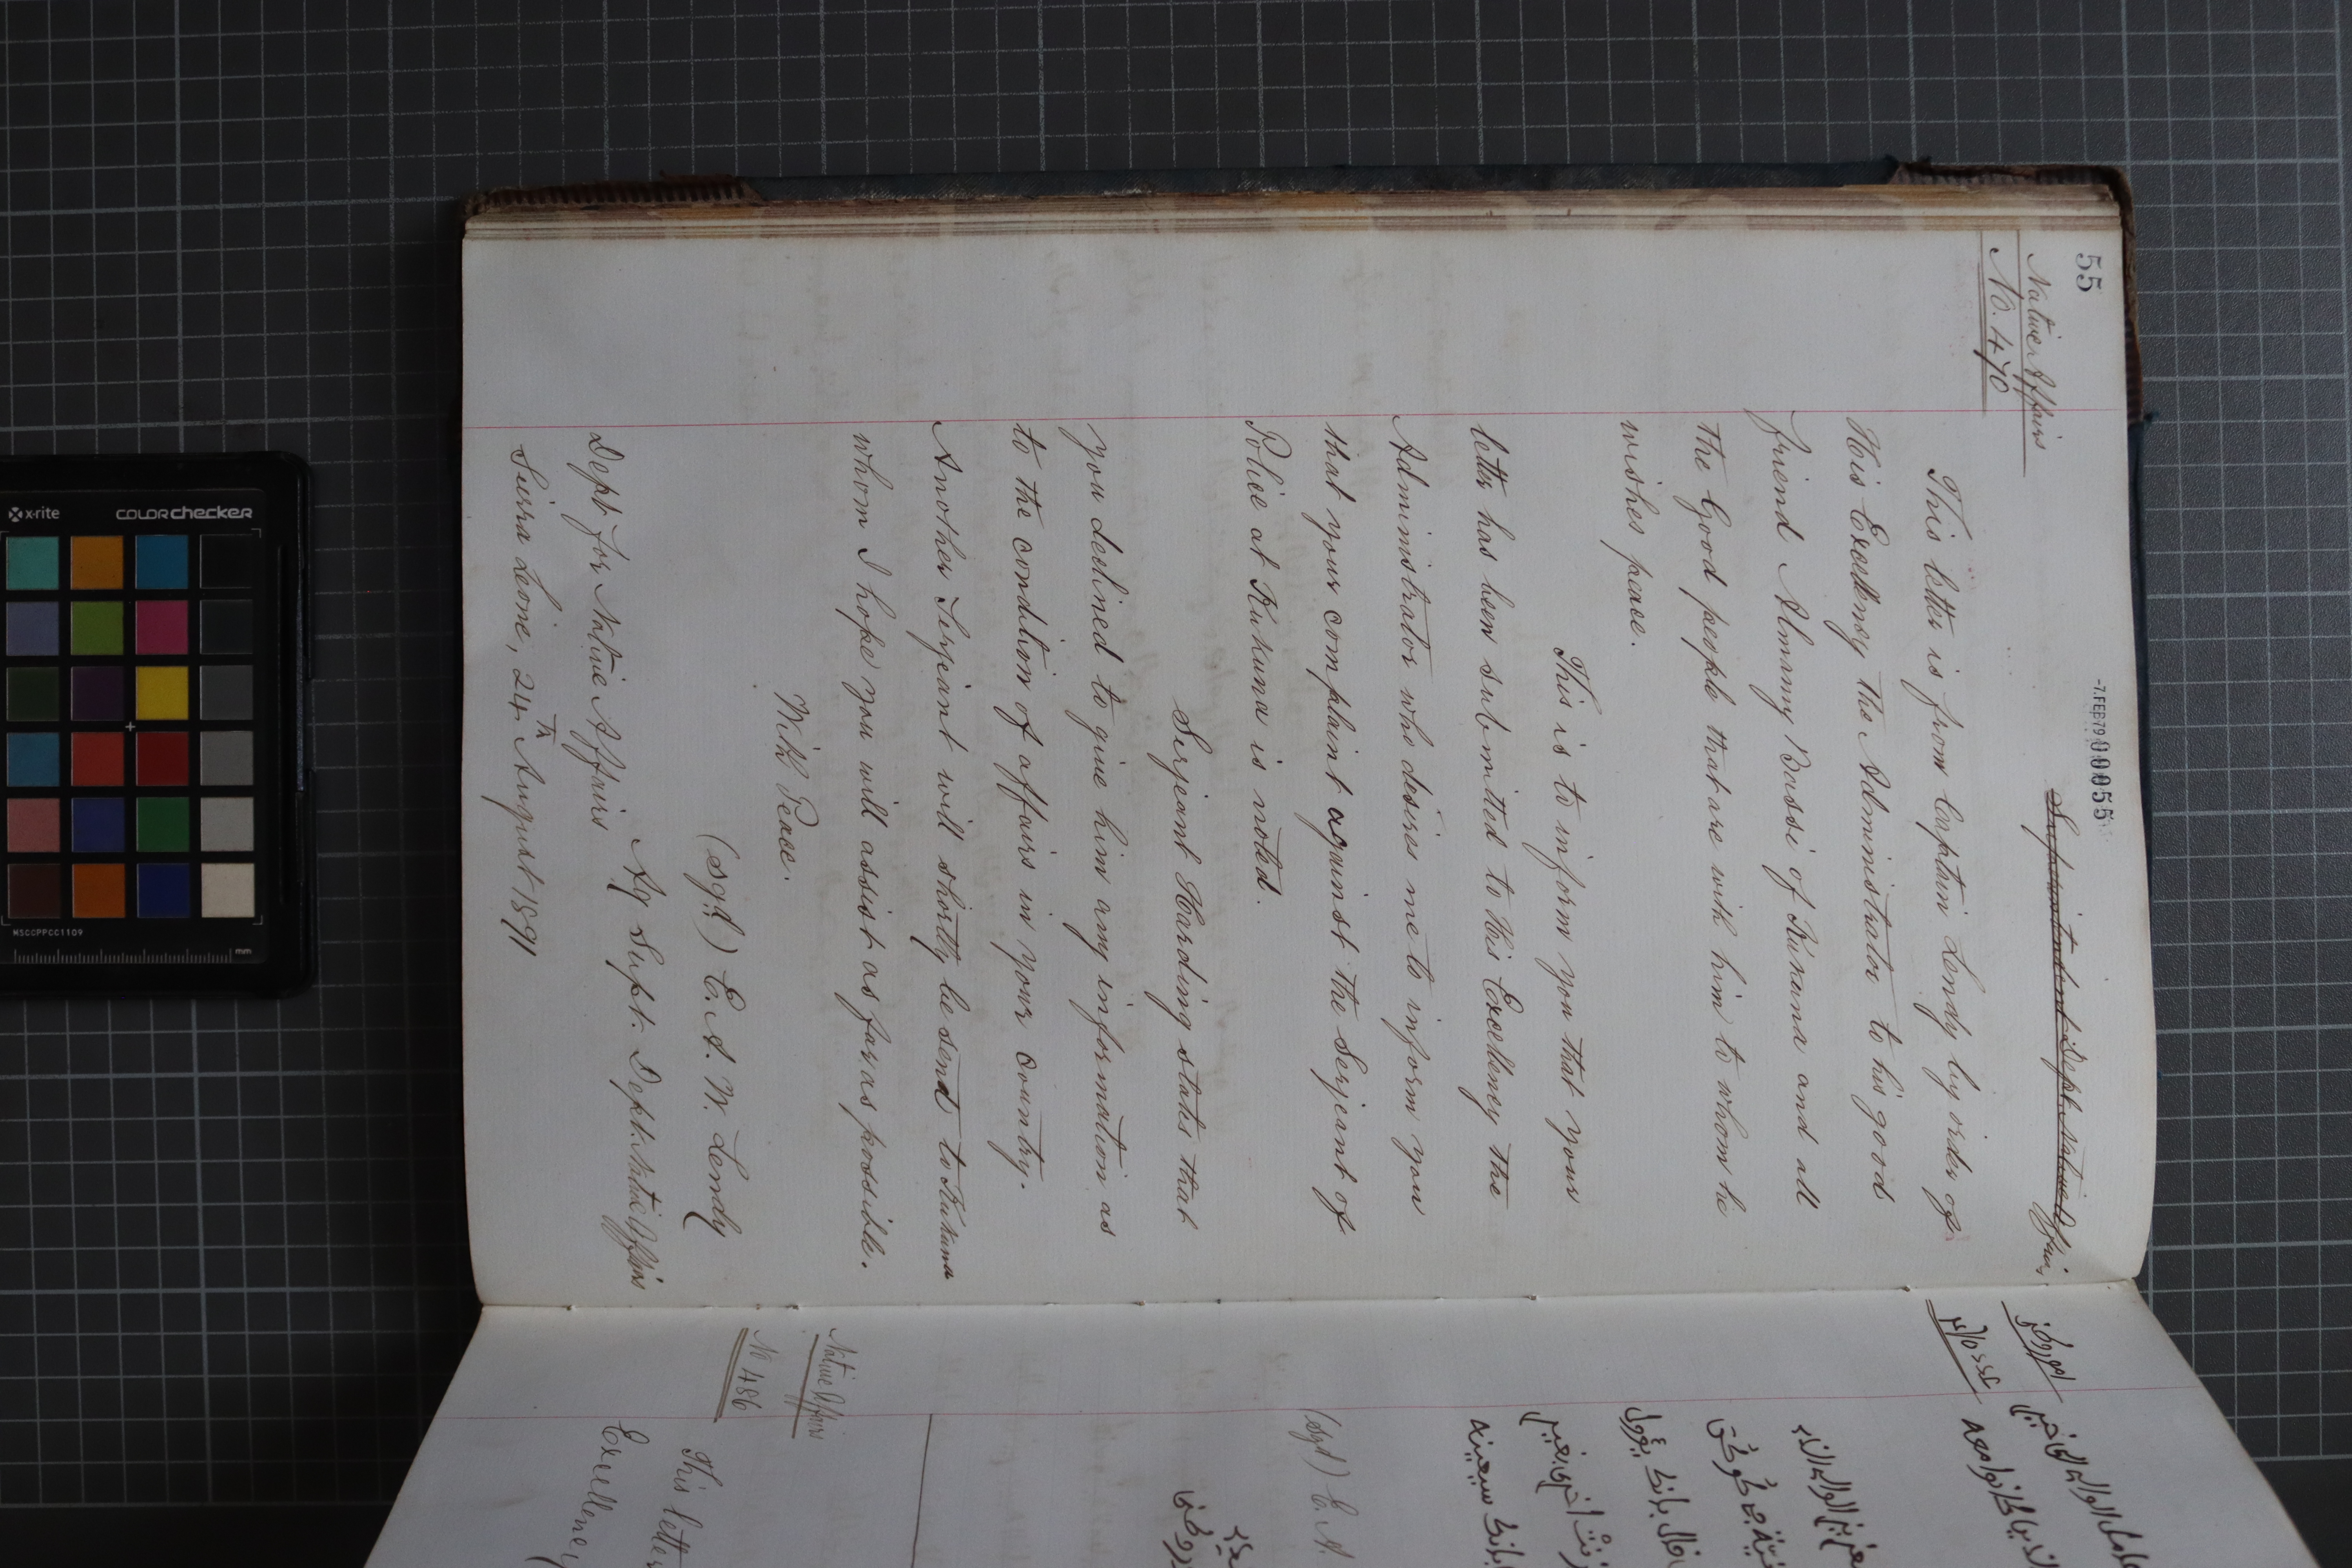 55
-7.FEB79 00055
Native Affairs
No. 470
Superintendent Dept. Native Affairs
This letter is from Captain Lendy by order of
His Excellency the Administrator to his good
friend Almamy Bussi of Kukuna and all
the Good people that are with him to whom he
wishes peace.
This is to inform you that your
letter has been submitted to His Excellency the
Administrator who desires me to inform you
that your complaint against the Serjeant of
Police at Kukuna is noted.
Serjeant Harding states that
you declined to give him any information as
to the condition of affairs in your country.
Another Serjeant will shortly be send to Kukuna
whom I hope you will assist as far as possible.
With Peace.
(sgd) E. A. W. Lendy
Ag Supt. Dept. Native Affairs
Dept for Native Affairs
Sierra Leone, 24th August 1891
(sgd) E. A.
Native Affairs
No 486
This letter
Excellency
x-rite
colorchecker
MSCCPPCC1109
mm